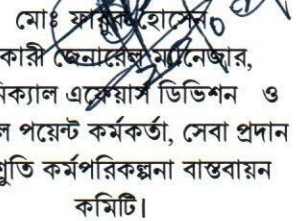 মোঃ ফারুক হোসেন,
কারী জেনারেল ম্যানেজার,
নিক্যাল এফেয়ার্স ডিভিশন ও
ল পয়েন্ট কর্মকর্তা, সেবা প্রদান
শ্রুতি কর্মপরিকল্পনা বাস্তবায়ন
কমিটি।